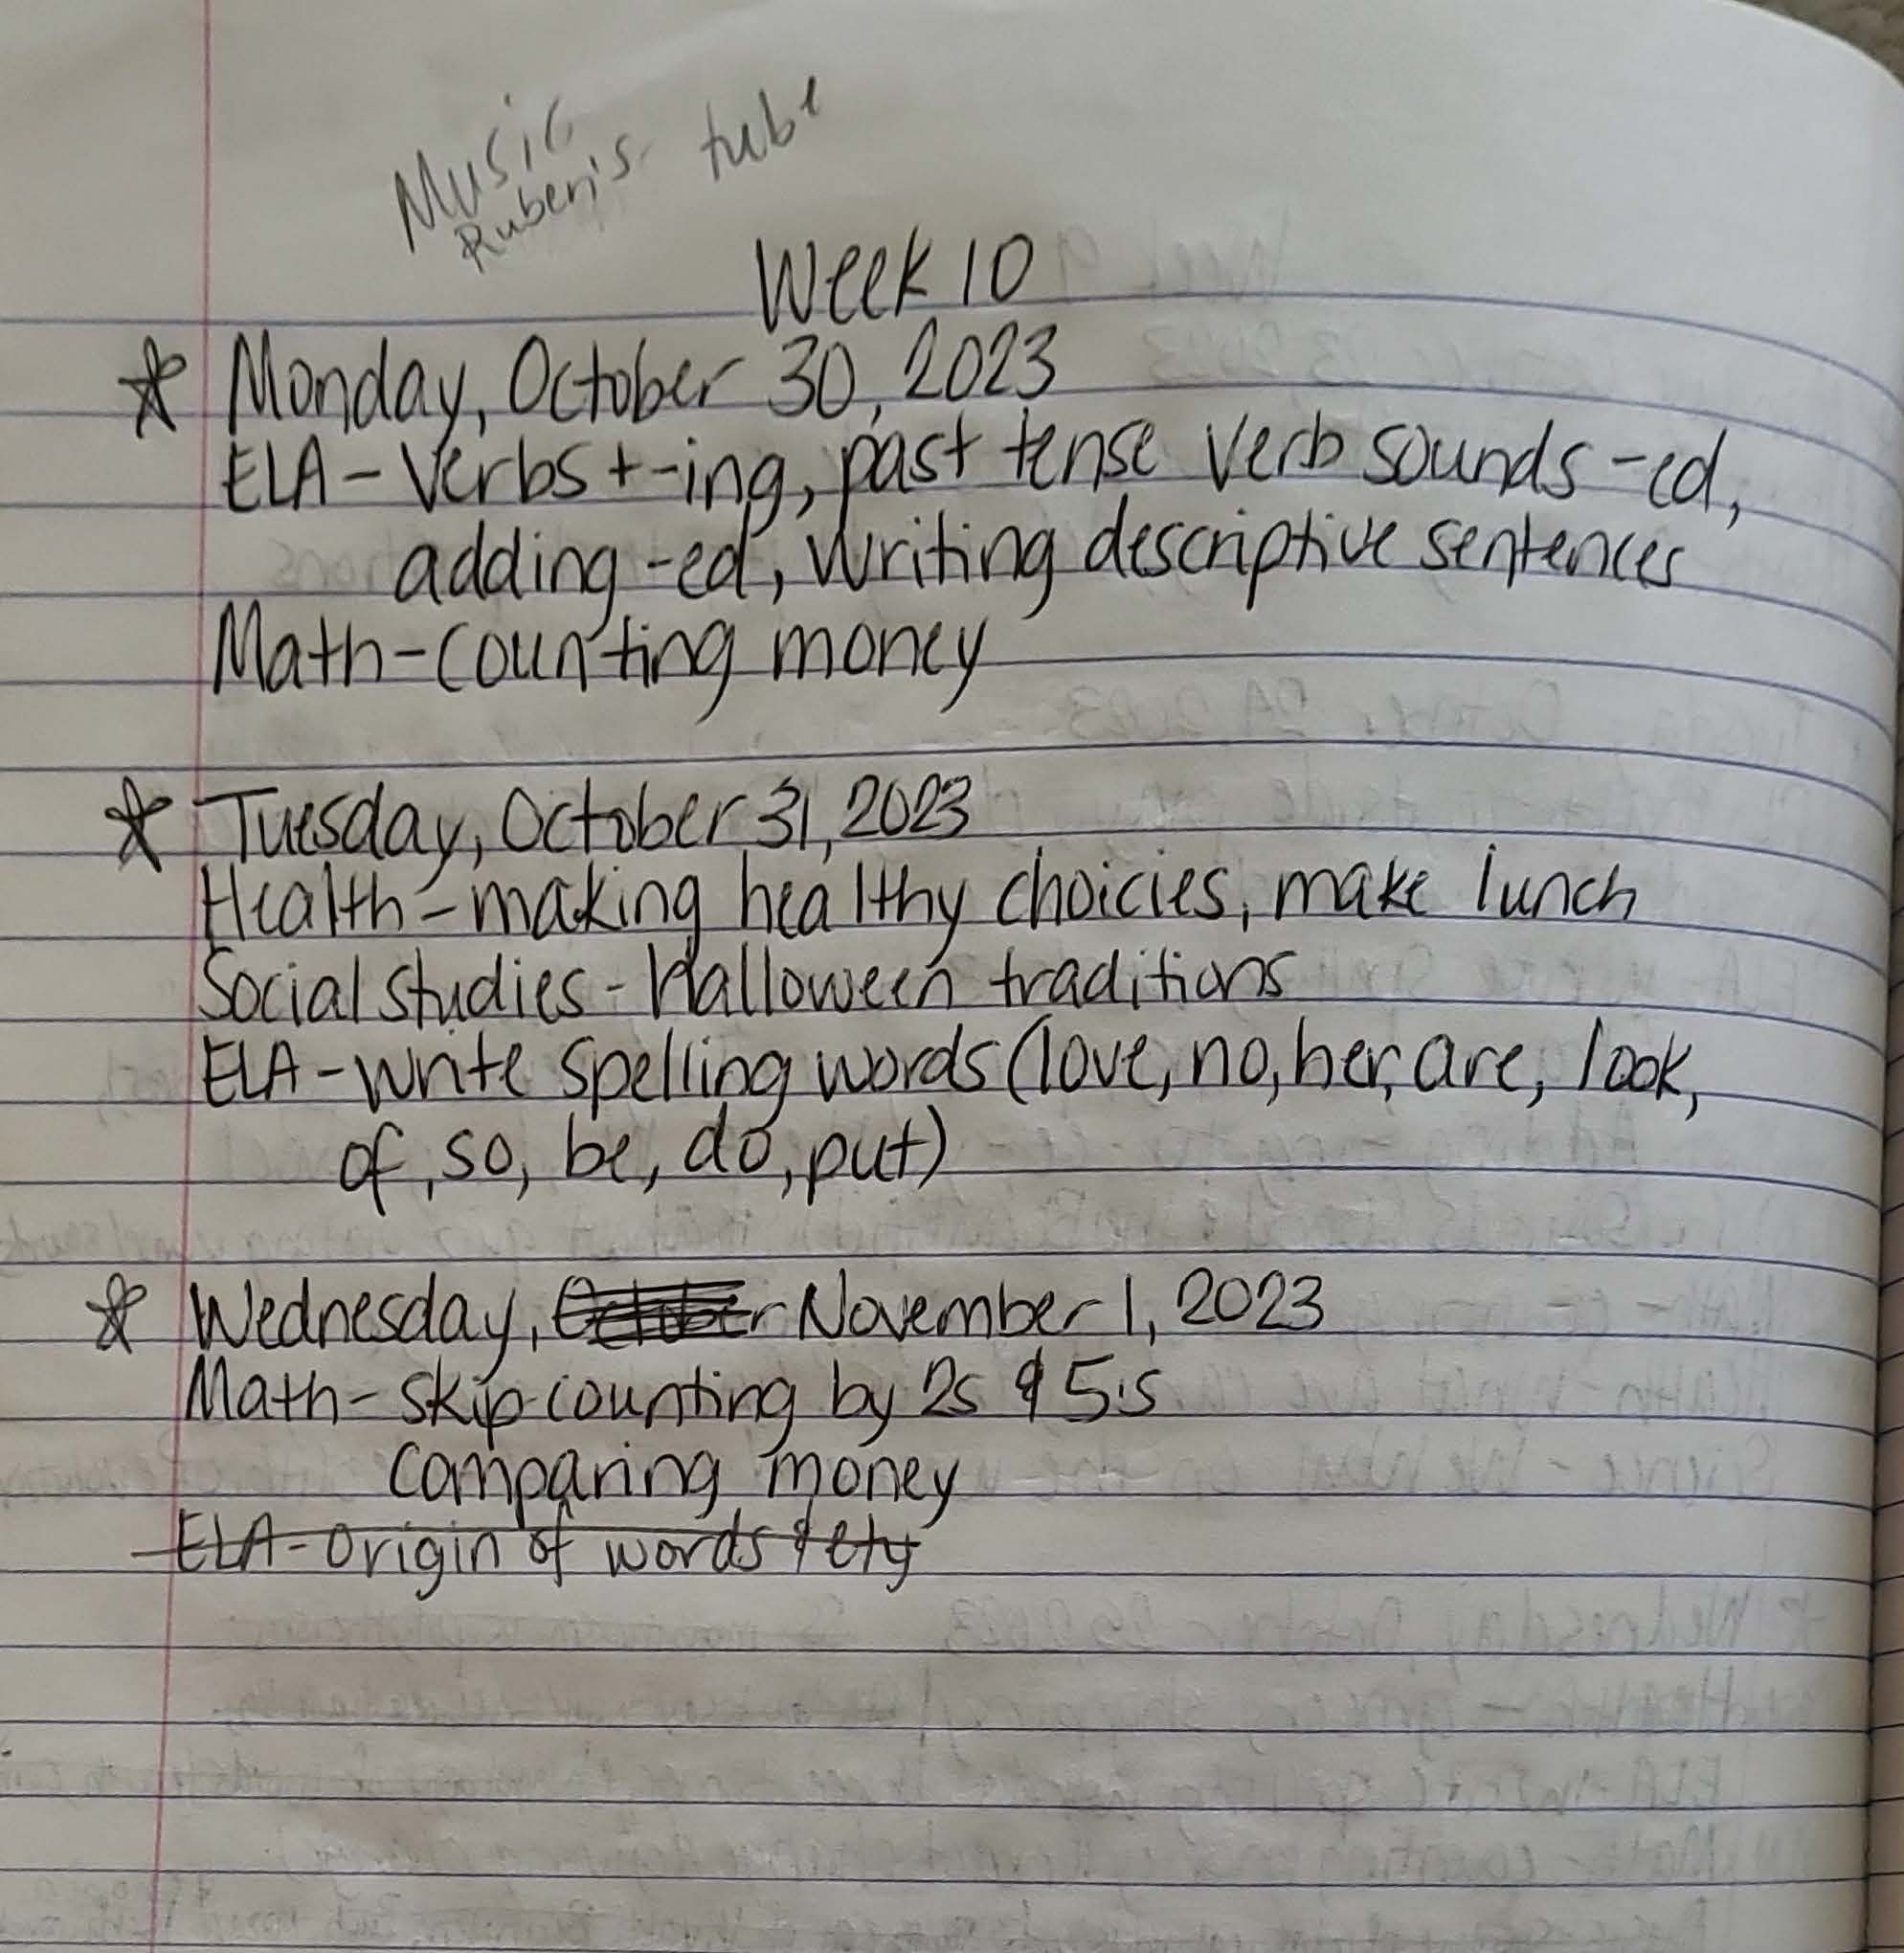 Music
Ruben's tube
Week 10
☆ Monday, October 30, 2023
ELA - Verbs + -ing, past tense verb sounds -ed,
adding -ed, writing descriptive sentences
Math - counting money
☆ Tuesday, October 31, 2023
Health - making healthy choicies, make lunch
Social studies - Halloween traditions
ELA - write spelling words (love, no, her, are, look,
of, so, be, do, put)
☆ Wednesday, October November 1, 2023
Math - skip counting by 2s & 5's
comparing money
ELA - origin of words & ety